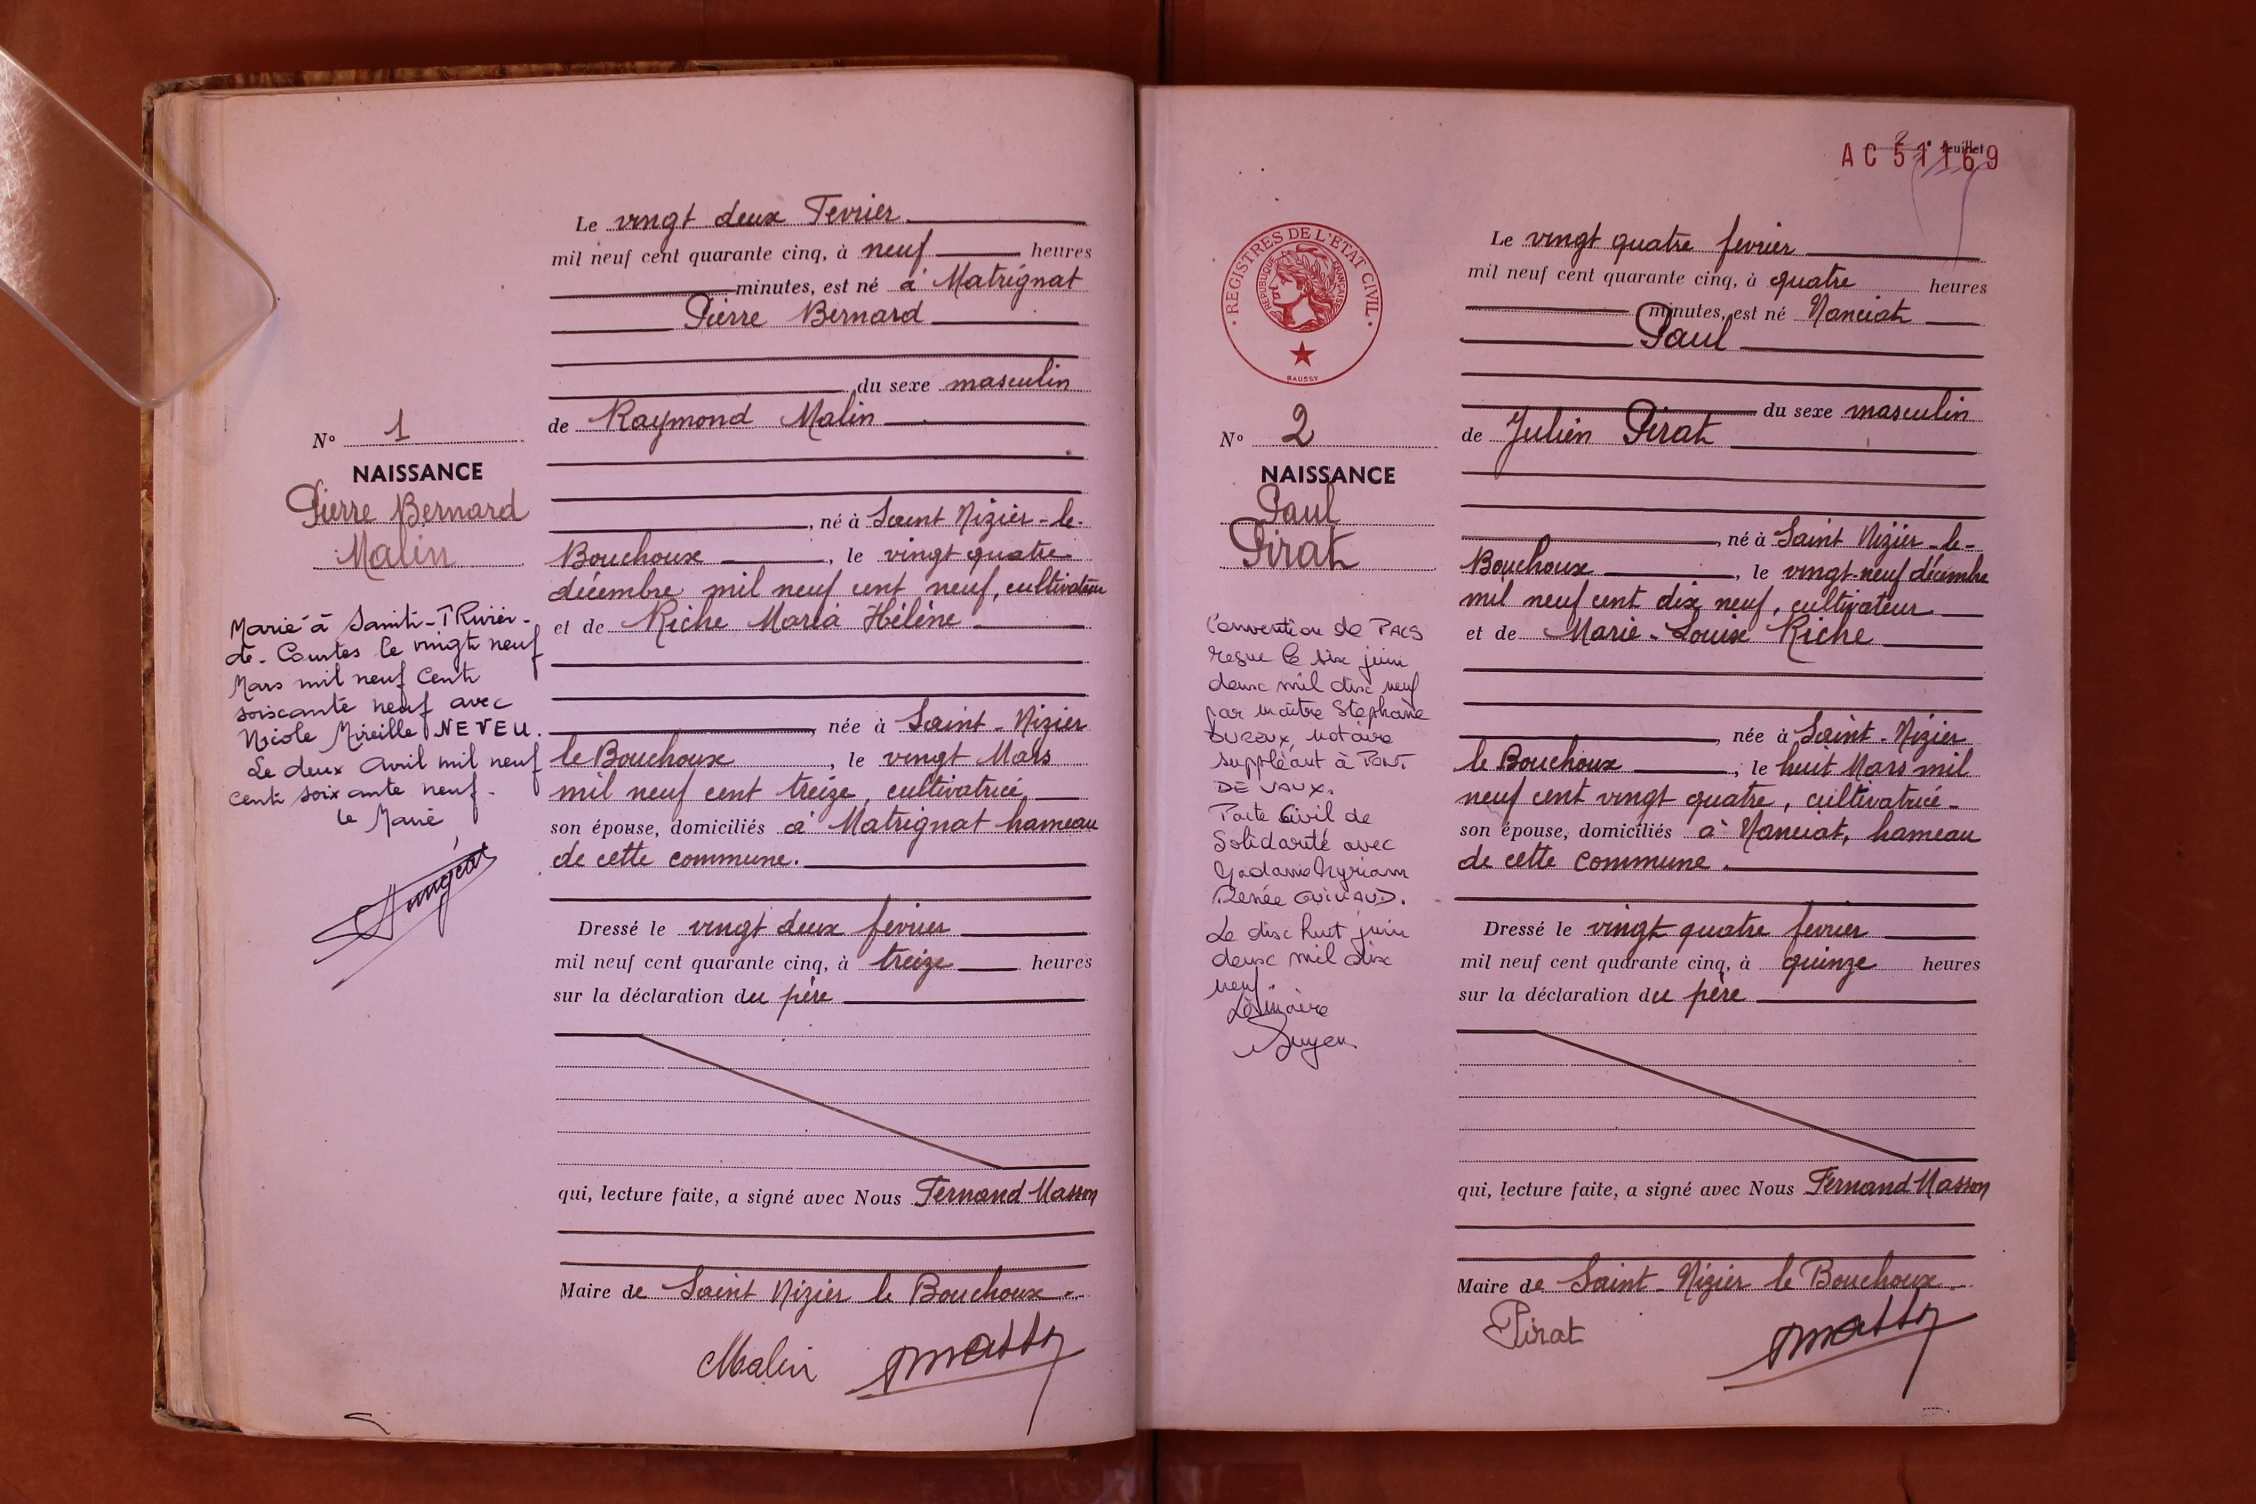 Le vingt deux Fevrier
mil neuf cent quarante cinq, à neuf heures
minutes, est né à Matrignat
Pierre Bernard
du sexe masculin
de Raymond Malin
N° 1
NAISSANCE
Pierre Bernard
Malin
, né à Saint Nizier-le-
Bouchoux , le vingt quatre
décembre mil neuf cent neuf, cultivateur
et de Riche Maria Hélène
née à Saint-Nizier
le Bouchoux , le vingt Mars
mil neuf cent treize, cultivatrice
son épouse, domiciliés à Matrignat hameau
de cette commune.
Marié à Saint-TRivier-
de-Courtes le vingt neuf
Mars mil neuf Cent
soixante neuf avec
Nicole Mireille NEVEU.
Le deux avril mil neuf
cent soixante neuf-
le Maire
Dressé le vingt deux fevrier
mil neuf cent quarante cinq, à treize heures
sur la déclaration du père
qui, lecture faite, a signé avec Nous Fernand Masson
Maire de Saint Nizier le Bouchoux.
Malin Masson
AC 51169
2e feuillet
REGISTRES DE L'ÉTAT CIVIL
RÉPUBLIQUE FRANÇAISE
Le vingt quatre fevrier
mil neuf cent quarante cinq, à quatre heures
minutes, est né Nanciat
Paul
du sexe masculin
de Julien Pirat
N° 2
NAISSANCE
Paul
Pirat
, né à Saint Nizier-le-
Bouchoux , le vingt-neuf décembre
mil neuf cent dix neuf, cultivateur
et de Marie-Louise Riche
, née à Saint-Nizier
le Bouchoux , le huit Mars mil
neuf cent vingt quatre, cultivatrice-
son épouse, domiciliés à Nanciat, hameau
de cette commune.
Convention de PACS
reçue le six juin
deux mil dix neuf
par maître Stéphane
notaire
suppléant à PONT
DE VAUX.
Pacte Civil de
Solidarité avec
Madame Myriam
Renée
Le dix huit juin
deux mil dix
neuf
Le maire
Dressé le vingt quatre fevrier
mil neuf cent quarante cinq, à quinze heures
sur la déclaration du père
qui, lecture faite, a signé avec Nous Fernand Masson
Maire de Saint-Nizier le Bouchoux
Pirat Masson